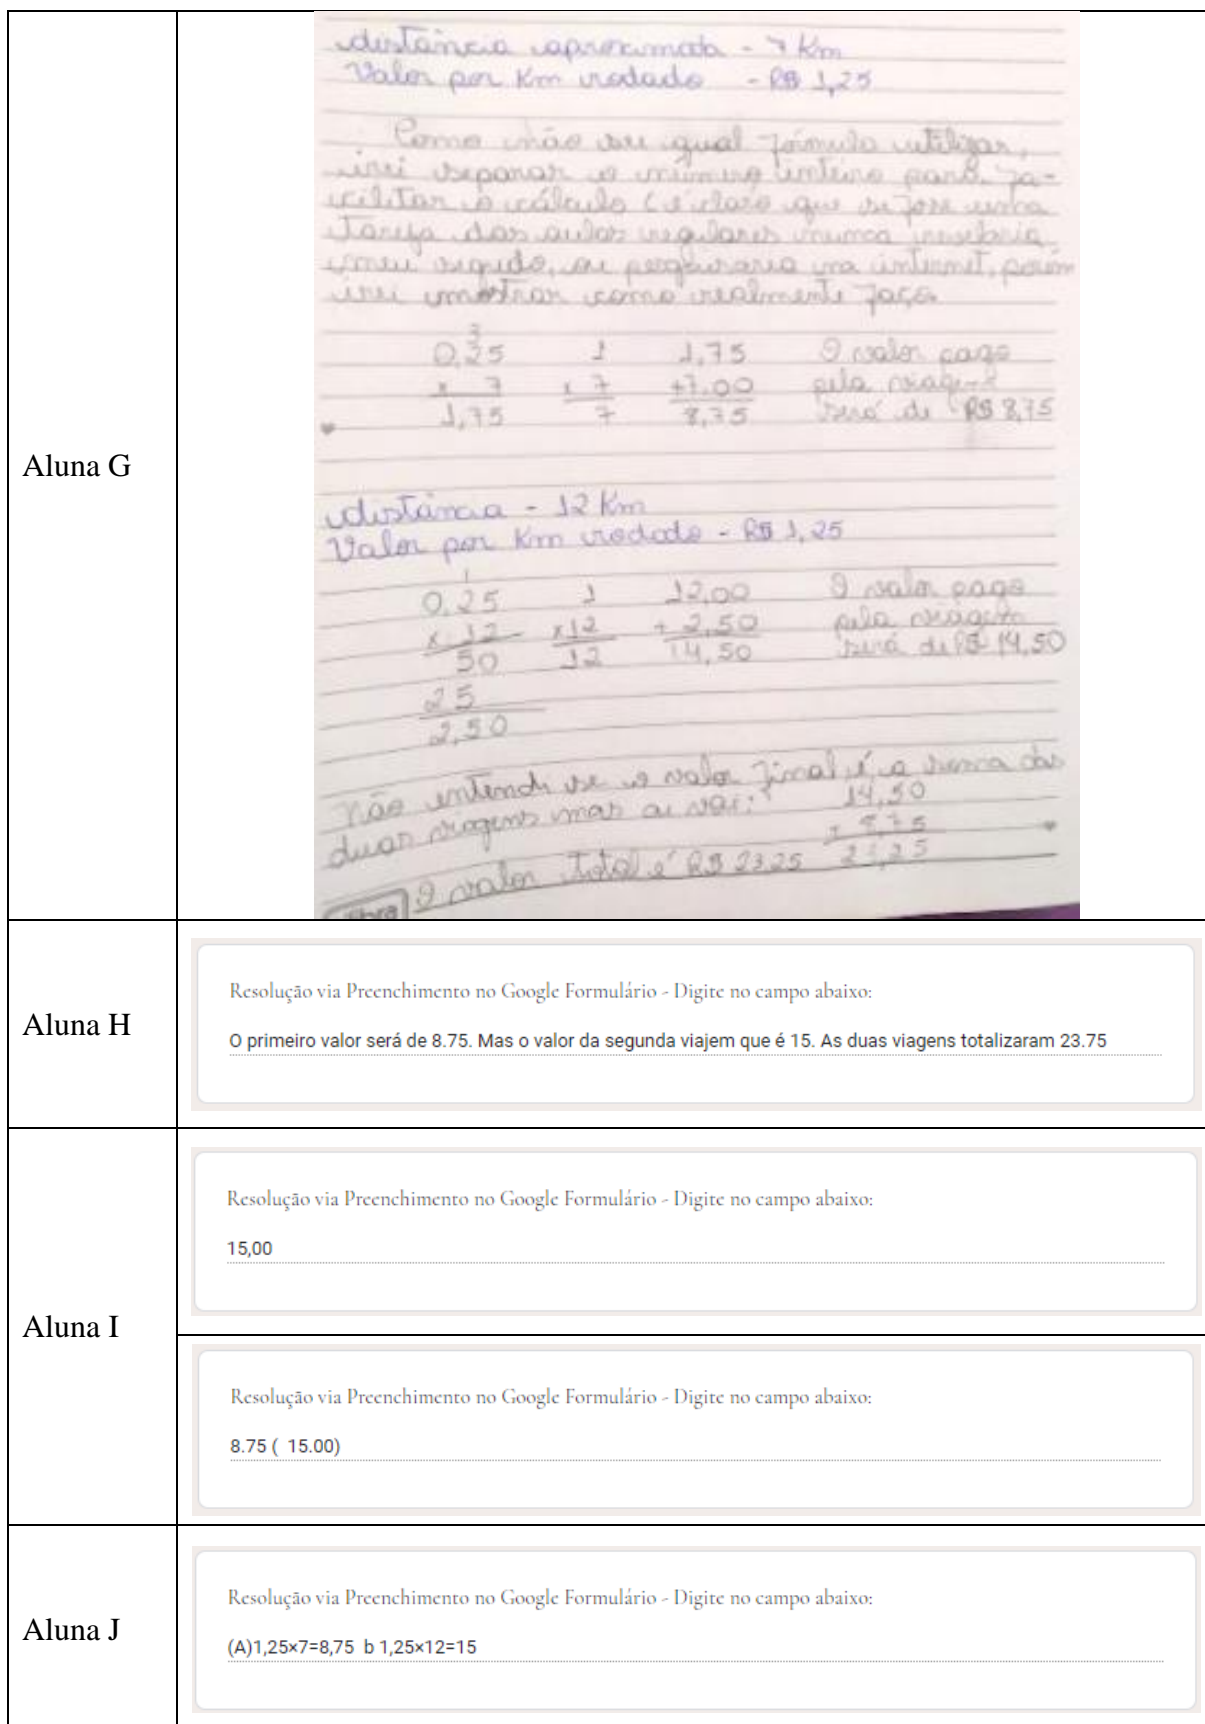 distância aproximada - 7 Km
Valor por Km rodado - R$ 1,25
Como não sei qual fórmula utilizar,
irei separar o número inteiro para fa-
cilitar o cálculo (é claro que se fose uma
tarefa das aulas regulares nunca
meu segudo, se pesquisaria na internet, porém
irei mostrar como realmente faço.
3
0,25 1 1,75 O valor pago
x 7 x 7 +7.00 pela viagem
1,75 7 8,75 será de R$ 8,75
Aluna G
distância - 12 Km
Valor por Km rodado - R$ 1,25
1
0,25 1 12,00 O valor pago
x 12 x12 + 2,50 pela viagem
50 12 14,50 será de R$ 14,50
25
2,50
Não entendi se o valor final é a soma das
duas viagens mas ai vai: 14,50
+ 8,75
O valor total é R$ 23,25 23,25
Aluna H
Resolução via Preenchimento no Google Formulário - Digite no campo abaixo:
O primeiro valor será de 8.75. Mas o valor da segunda viajem que é 15. As duas viagens totalizaram 23.75
Aluna I
Resolução via Preenchimento no Google Formulário - Digite no campo abaixo:
15,00
Resolução via Preenchimento no Google Formulário - Digite no campo abaixo:
8.75 ( 15.00)
Aluna J
Resolução via Preenchimento no Google Formulário - Digite no campo abaixo:
(A)1,25×7=8,75 b 1,25×12=15